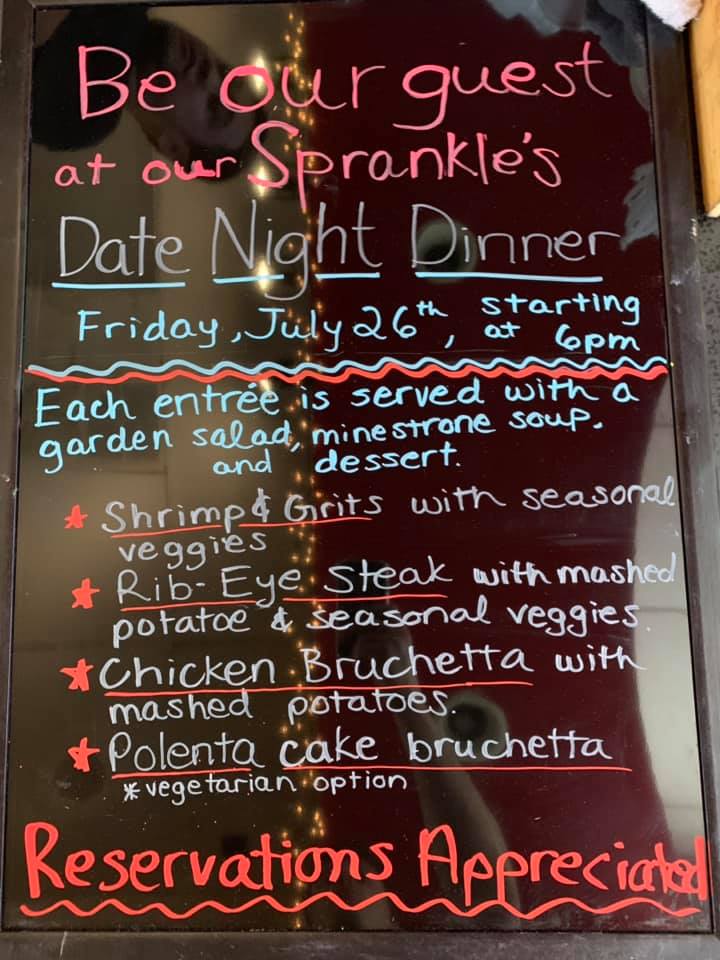 Be our guest
at our Sprankle's
Date Night Dinner
Friday, July 26th, starting
at 6pm
Each entrée is served with a
garden salad, minestrone soup,
and dessert.
* Shrimp & Grits with seasonal
veggies
* Rib-Eye Steak with mashed
potatoe & seasonal veggies.
* Chicken Bruchetta with
mashed potatoes.
* Polenta cake bruchetta
* vegetarian option
Reservations Appreciated